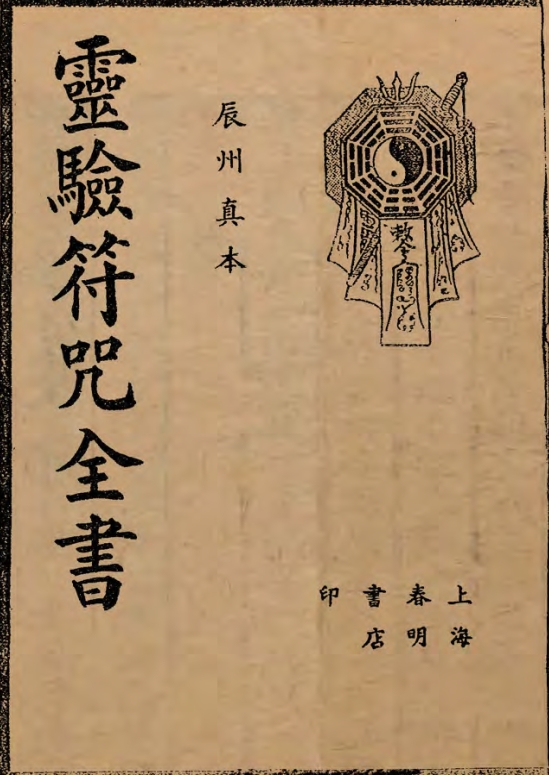 敕令
上海
春明
書店
印
辰州真本
靈驗符咒全書